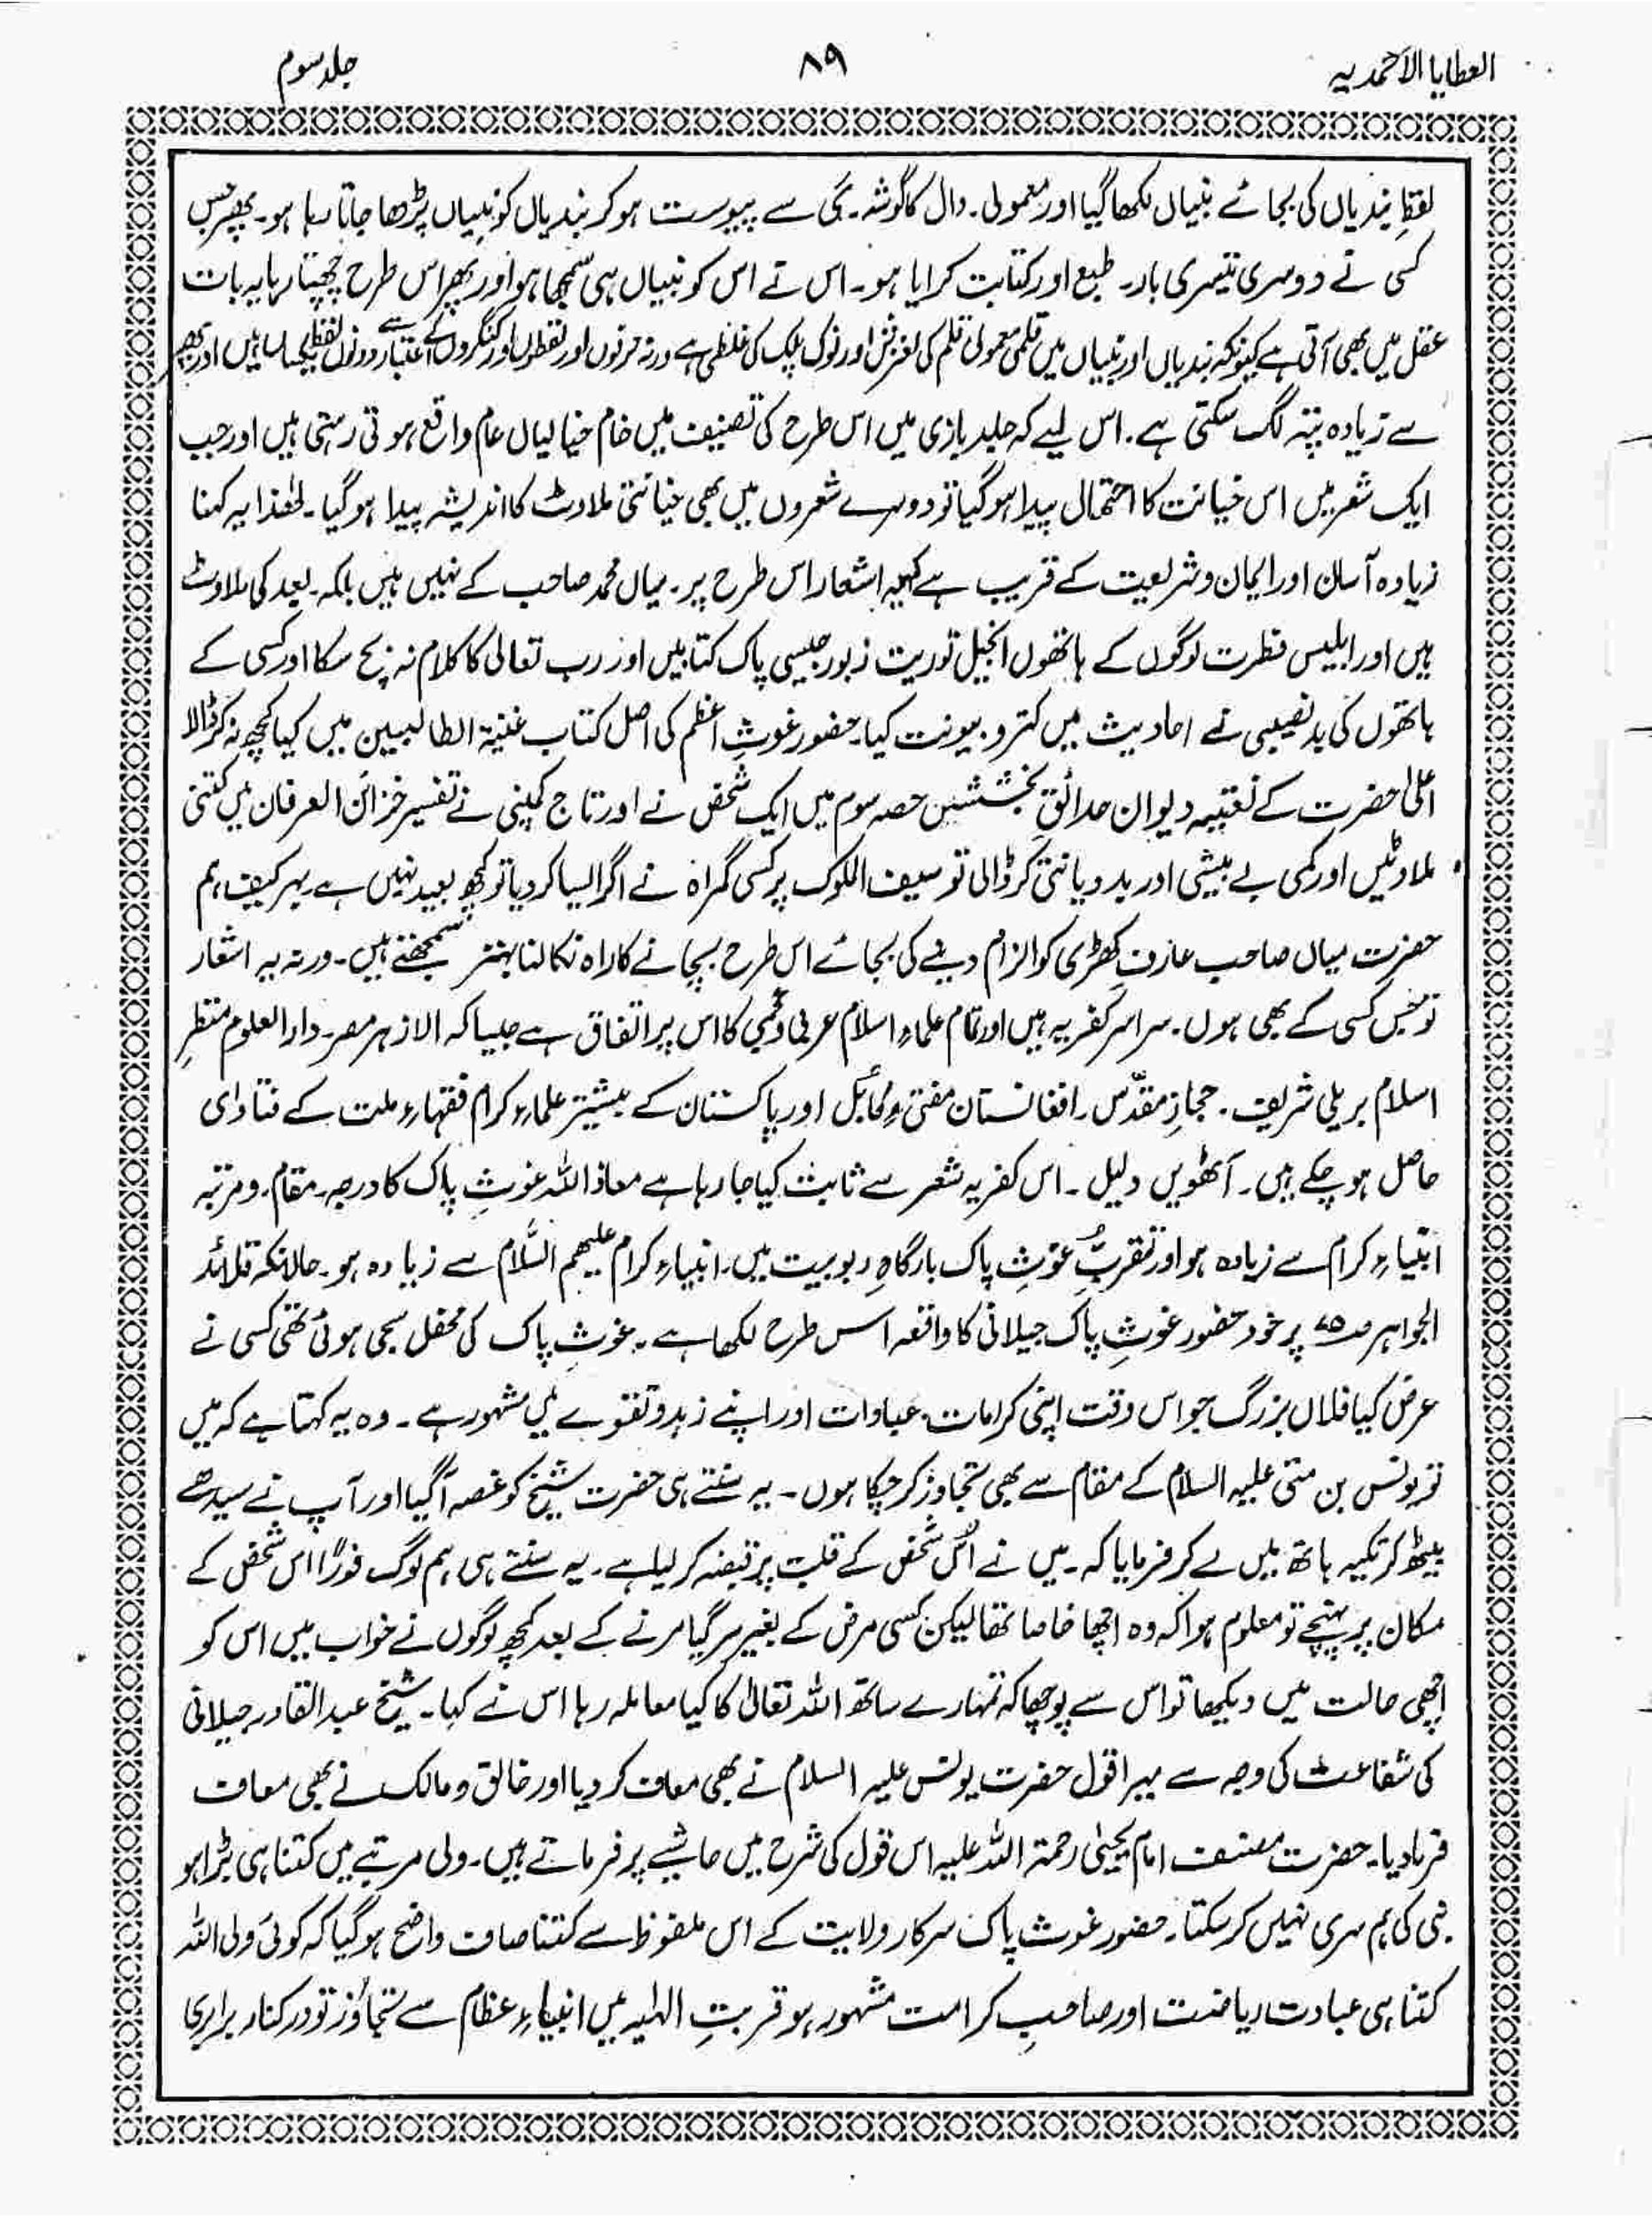 العطایا الاحمدیہ
۸۹
جلد سوم
لفظِ بندیاں کی بجائے نبیاں لکھا گیا اور معمولی۔ دال کا گوشہ۔ ی سے پیوست ہو کر بندیاں کو نبیاں پڑھا جاتا رہا ہو۔ پھر جس
کسی نے دوسری تیسری بار۔ طبع اور کتابت کرایا ہو۔ اس نے اس کو نبیاں ہی سمجھا ہو اور پھر اس طرح چھپتا رہا یہ بات
عقل میں بھی آتی ہے کیونکہ بندیاں اور نبیاں میں قلمی معمولی قلم کی لغزش اور نوک پلک کی غلطی ہے ورنہ حرفوں اور نقطوں اور کنگروں کے اعتبار سے دونوں لفظ یکساں ہیں اور پھر
سے زیادہ پتہ لگ سکتی ہے۔ اس لیے کہ جلد بازی میں اس طرح کی تصنیف میں خام خیالیاں عام واقع ہوتی رہتی ہیں اور جب
ایک شعر میں اس خیانت کا احتمال پیدا ہو گیا تو دوسرے شعروں میں بھی خیانتی ملاوٹ کا اندیشہ پیدا ہو گیا۔ لھٰذا یہ کہنا
زیادہ آسان اور ایمان و شریعت کے قریب ہے کہ یہ اشعار اس طرح پر۔ میاں محمد صاحب کے نہیں ہیں بلکہ۔ بعد کی ملاوٹ
ہیں اور ابلیس فطرت لوگوں کے ہاتھوں انجیل توریت زبور جیسی پاک کتابیں اور رب تعالیٰ کا کلام نہ بچ سکا اور کسی کے
ہاتھوں کی بد نصیبی نے احادیث میں کتر و بیونت کیا۔ حضور غوثِ اعظم کی اصل کتاب غنیۃ الطالبین میں کیا کچھ نہ کر ڈالا
اعلیٰ حضرت کے نعتیہ دیوان حدائقِ بخشش حصہ سوم میں ایک شخص نے اور تاج کمپنی نے تفسیر خزائن العرفان میں کتنی
ملاوٹیں اور کمی بے بیشی اور بد دیانتی کر ڈالی تو سیف الملوک پر کسی گمراہ نے اگر ایسا کر دیا تو کچھ بعید نہیں ہے بہر کیف ہم
حضرت میاں صاحب عارفِ کھڑی کو الزام دینے کی بجائے اس طرح بچانے کا راہ نکالنا بہتر سمجھتے ہیں۔ ورنہ یہ اشعار
تو جس کسی کے بھی ہوں۔ سراسر کفریہ ہیں اور تمام علماءِ اسلام عربی و عجمی کا اس پر اتفاق ہے جیسا کہ الازہر مصر۔ دارالعلوم منظرِ
اسلام بریلی شریف۔ حجازِ مقدّس۔ افغانستان مفتیءِ کابل اور پاکستان کے بیشتر علماءِ کرام فقہاءِ ملت کے فتاوای
حاصل ہو چکے ہیں۔ آٹھویں دلیل۔ اس کفریہ شعر سے ثابت کیا جا رہا ہے معاذ اللہ غوثِ پاک کا درجہ۔ مقام۔ و مرتبہ
انبیاءِ کرام سے زیادہ ہو اور تقربِّ غوثِ پاک بارگاہِ ربوبیت میں۔ انبیاءِ کرام علیھم السّلام سے زیادہ ہو۔ حالانکہ قلائد
الجواہر صـ پر خود حضور غوثِ پاک جیلانی کا واقعہ اس طرح لکھا ہے۔ غوثِ پاک کی محفل سجی ہوئی تھی کسی نے
عرض کیا فلاں بزرگ جو اس وقت اپنی کرامات۔ عبادات اور اپنے زہد و تقوے میں مشہور ہے۔ وہ یہ کہتا ہے کہ میں
تو یونس بن متی علیہ السلام کے مقام سے بھی تجاوز کر چکا ہوں۔ یہ سنتے ہی حضرت شیخ کو غصہ آگیا اور آپ نے سیدھے
بیٹھ کر تکیہ ہاتھ میں لے کر فرمایا کہ۔ میں نے اُس شخص کے قلب پر قبضہ کر لیا ہے۔ یہ سنتے ہی ہم لوگ فورًا اس شخص کے
مکان پر پہنچے تو معلوم ہوا کہ وہ اچھا خاصا تھا لیکن کسی مرض کے بغیر مر گیا مرنے کے بعد کچھ لوگوں نے خواب میں اس کو
اچھی حالت میں دیکھا تو اس سے پوچھا کہ تمہارے ساتھ اللہ تعالیٰ کا کیا معاملہ رہا اس نے کہا۔ شیخ عبدالقادر جیلانی
کی شفاعت کی وجہ سے میرا قول حضرت یونس علیہ السلام نے بھی معاف کر دیا اور خالق و مالک نے بھی معاف
فرما دیا۔ حضرت مصنف امام یحییٰ رحمۃ اللہ علیہ اس قول کی شرح میں حاشیے پر فرماتے ہیں۔ ولی مرتبے میں کتنا ہی بڑا ہو
نبی کی ہم سری نہیں کر سکتا۔ حضور غوث پاک سرکار ولایت کے اس ملفوظ سے کتنا صاف واضح ہو گیا کہ کوئی ولی اللہ
کتنا ہی عبادت ریاضت اور صاحبِ کرامت مشہور ہو قربتِ الہٰیہ میں انبیاءِ عظام سے تجاوُز تو در کنار برابری